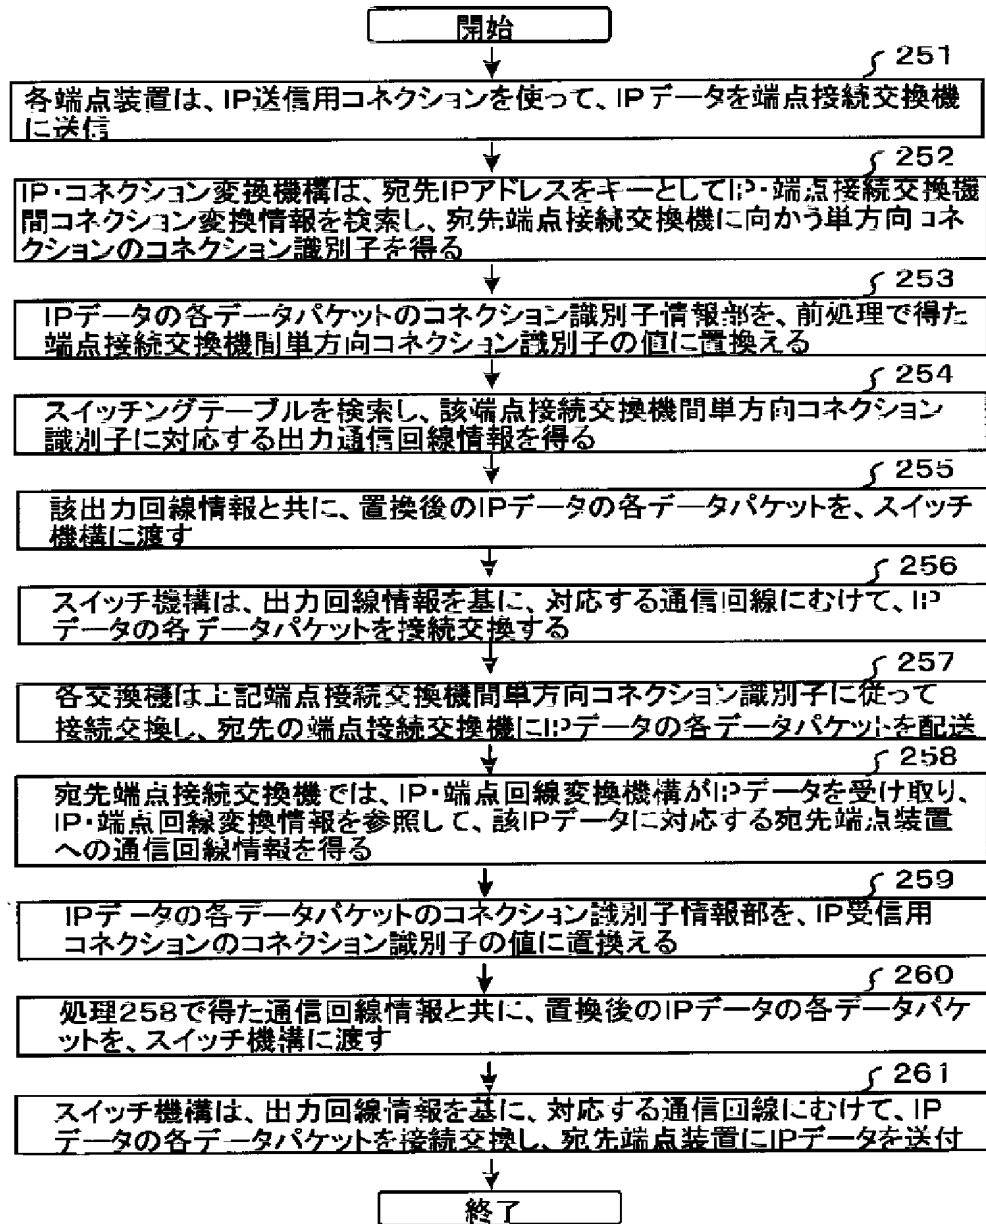 開始
251
各端点装置は、IP送信用コネクションを使って、IPデータを端点接続交換機
に送信
252
IP・コネクション変換機構は、宛先IPアドレスをキーとしてIP・端点接続交換機
間コネクション変換情報を検索し、宛先端点接続交換機に向かう単方向コネ
クションのコネクション識別子を得る
253
IPデータの各データパケットのコネクション識別子情報部を、前処理で得た
端点接続交換機間単方向コネクション識別子の値に置換える
254
スイッチングテーブルを検索し、該端点接続交換機間単方向コネクション
識別子に対応する出力通信回線情報を得る
255
該出力回線情報と共に、置換後のIPデータの各データパケットを、スイッチ
機構に渡す
256
スイッチ機構は、出力回線情報を基に、対応する通信回線にむけて、IP
データの各データパケットを接続交換する
257
各交換機は上記端点接続交換機間単方向コネクション識別子に従って
接続交換し、宛先の端点接続交換機にIPデータの各データパケットを配送
258
宛先端点接続交換機では、IP・端点回線変換機構がIPデータを受け取り、
IP・端点回線変換情報を参照して、該IPデータに対応する宛先端点装置
への通信回線情報を得る
259
IPデータの各データパケットのコネクション識別子情報部を、IP受信用
コネクションのコネクション識別子の値に置換える
260
処理258で得た通信回線情報と共に、置換後のIPデータの各データパケ
ットを、スイッチ機構に渡す
261
スイッチ機構は、出力回線情報を基に、対応する通信回線にむけて、IP
データの各データパケットを接続交換し、宛先端点装置にIPデータを送付
終了